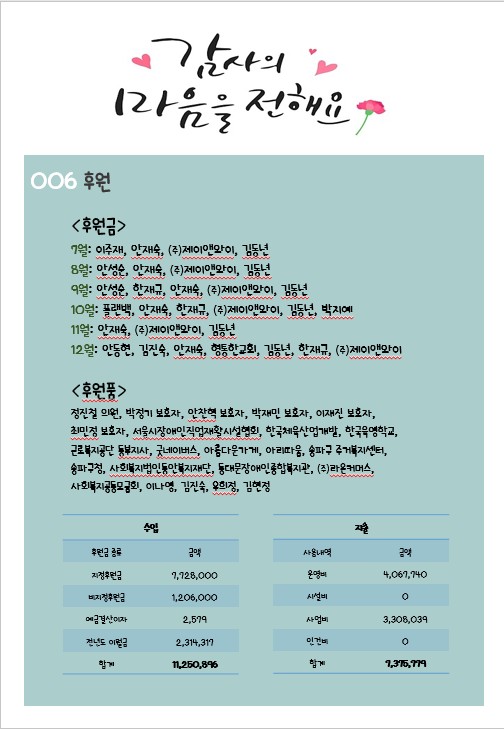 감사의
마음을 전해요
006 후원
<후원금>
7월: 이주재, 안재숙, (주)제이앤와이, 김동년
8월: 안성순, 안재숙, (주)제이앤와이, 김동년
9월: 안성순, 한재규, 안재숙, (주)제이앤와이, 김동년
10월: 플랜백, 안재숙, 한재규, (주)제이앤와이, 김동년, 박지예
11월: 안재숙, (주)제이앤와이, 김동년
12월: 안동현, 김진숙, 안재숙, 형통한교회, 김동년, 한재규, (주)제이앤와이
<후원품>
정진철 의원, 박정기 보호자, 안찬혁 보호자, 박재민 보호자, 이재진 보호자,
최민정 보호자, 서울시장애인직업재활시설협회, 한국체육산업개발, 한국육영학교,
근로복지공단 동부지사, 굿네이버스, 아름다운가게, 아리따움, 송파구 주거복지센터,
송파구청, 사회복지법인동안복지재단, 동대문장애인종합복지관, (주)라온커머스,
사회복지공동모금회, 이나영, 김진숙, 우희정, 김현정
수입 지출
후원금 종류 금액 사용내역 금액
지정후원금 7,728,000 운영비 4,067,740
비지정후원금 1,206,000 시설비 0
예금결산이자 2,579 사업비 3,308,039
전년도 이월금 2,314,317 인건비 0
합계 11,250,896 합계 7,375,779